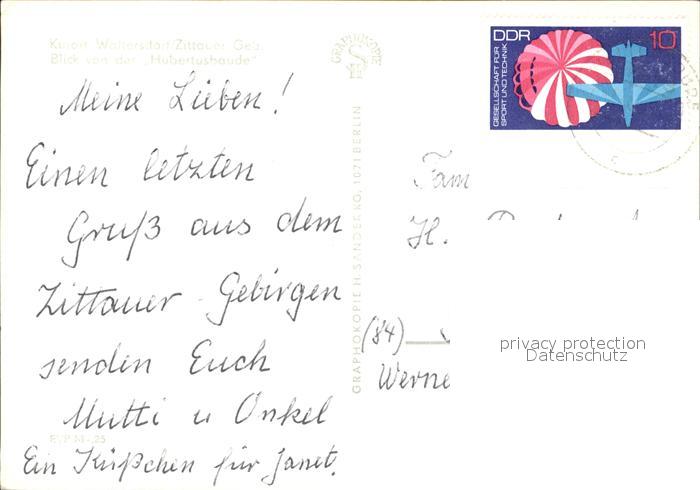 Kurort Waltersdorf/Zittauer Geb.
Blick von der „Hubertusbaude"
Meine Lieben!
Einen letzten
Gruß aus dem
Zittauer Gebirgen
senden Euch
Mutti u Onkel
EVP M -,25
Ein Küßchen für Janet.
GRAPHOKOPIE
GRAPHOKOPIE H. SANDER KG, 1071 BERLIN
DDR 10
GESELLSCHAFT FÜR
SPORT UND TECHNIK
Fam
H.
(84)
Werne
privacy protection
Datenschutz